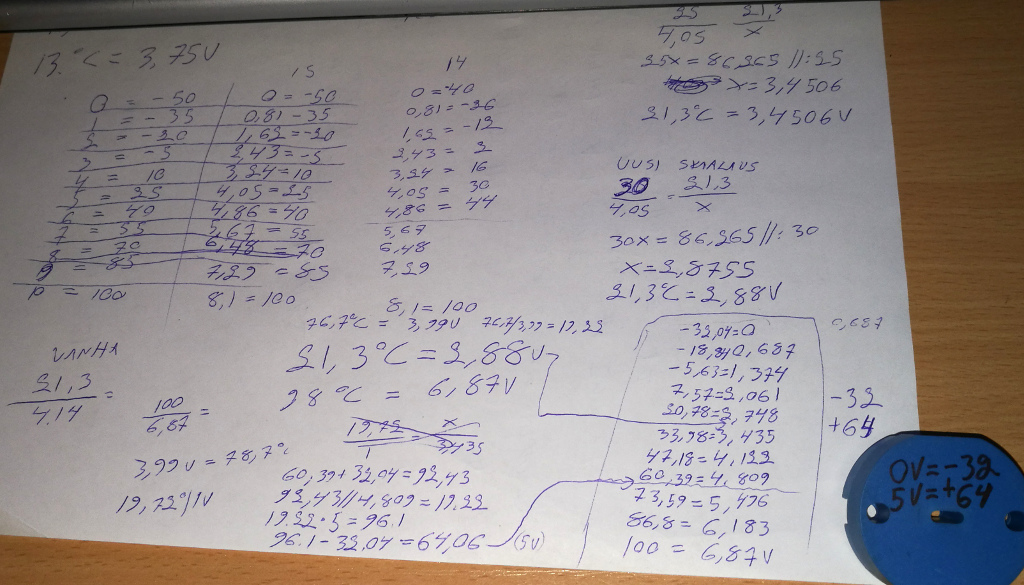 13.°C = 3,75V
0 = -50
1 = -35
2 = -20
3 = -5
4 = 10
5 = 25
6 = 40
7 = 55
8 = 70
9 = 85
10 = 100
15
0 = -50
0,81 -35
1,62 = -20
2,43 = -5
3,24 = 10
4,05 = 25
4,86 = 40
5,67 = 55
6,48 = 70
7,29 = 85
8,1 = 100
14
0 = -40
0,81 = -26
1,62 = -12
2,43 = 2
3,24 = 16
4,05 = 30
4,86 = 44
5,67
6,48
7,29
8,1 = 100
25 21,3
4,05 x
25x = 86,265 //:25
x = 3,4506
21,3°C = 3,4506V
UUSI SKAALAUS
30 = 21,3
4,05 x
30x = 86,265 //: 30
x = 2,8755
21,3°C = 2,88V
76,7°C = 3,99V 76,7/3,99 = 19,22
21,3°C = 2,88V
98°C = 6,87V
19,72 = x
1 3,435
VANHA
21,3 =
4.14
100 =
6,87
3,99V = 78,7°C
19,72°/1V
60,39 + 32,04 = 92,43
92,43//4,809 = 19.22
19.22 · 5 = 96.1
96.1 - 32,04 = 64,06 (5V)
-32,04=0
-18,84 0,687
-5,63=1,374
7,57=2,061
20,78=2,748
33,98=3,435
47,18=4,122
60,39=4,809
73,59=5,496
86,8=6,183
100 = 6,87V
0,687
-32
+64
0V=-32
5V=+64